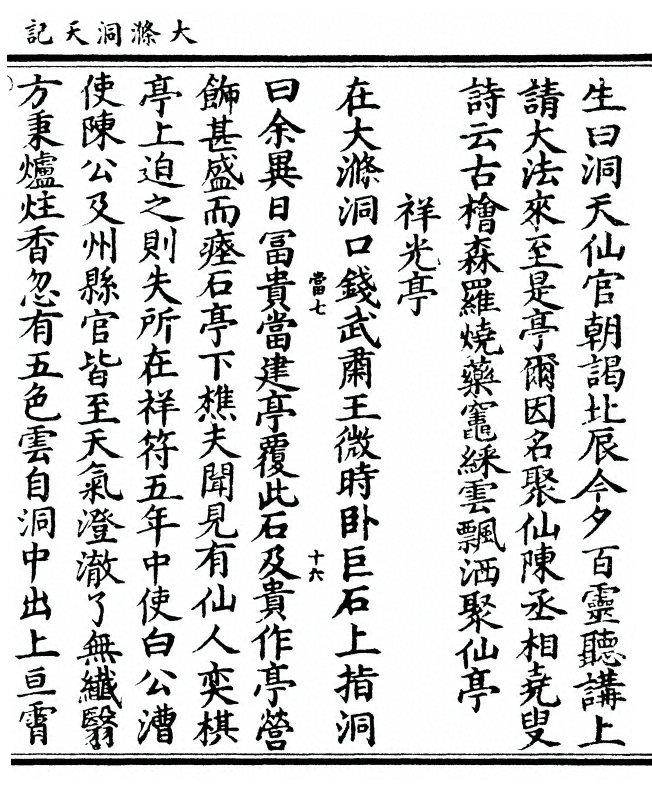 大滌洞天記
生曰洞天仙官朝謁北辰今夕百靈聽講上
請大法來至是亭爾因名聚仙陳丞相堯叟
詩云古檜森羅燒藥竈綵雲飄洒聚仙亭
祥光亭
在大滌洞口錢武肅王微時卧巨石上指洞
當七
十六
曰余異日冨貴當建亭覆此石及貴作亭營
飾甚盛而瘞石亭下樵夫聞見有仙人奕棋
亭上迫之則失所在祥符五年中使白公漕
使陳公及州縣官皆至天氣澄澈了無纖翳
方秉爐炷香忽有五色雲自洞中出上亘霄